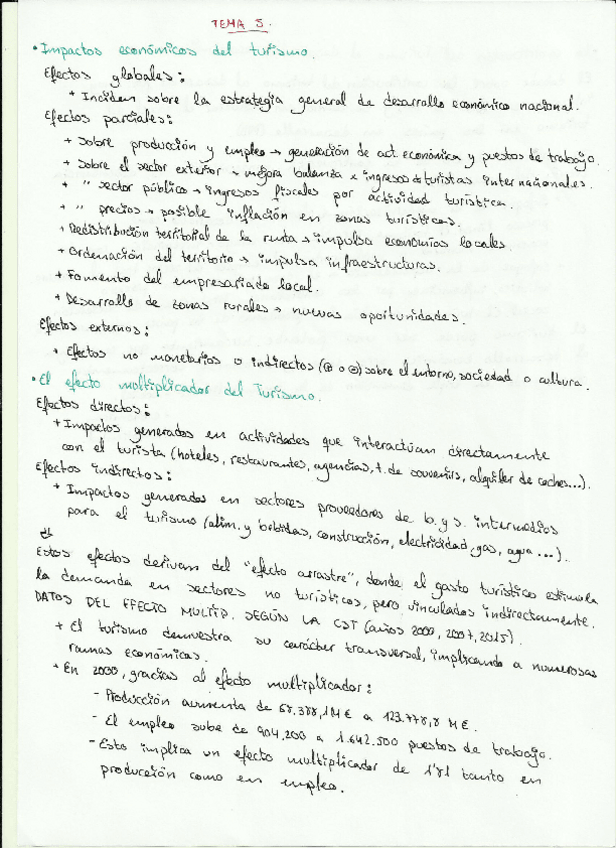 TEMA 5.
• Impactos económicos del turismo.
Efectos globales:
+ Inciden sobre la estrategia general de desarrollo económico nacional.
Efectos parciales:
+ Sobre producción y empleo → generación de act. económica y puestos de trabajo.
+ Sobre el sector exterior → mejora balanza x ingresos de turistas internacionales.
+ " sector público → ingresos fiscales por actividad turística.
+ " precios → posible inflación en zonas turísticas.
+ Redistribución territorial de la renta → impulsa economías locales
+ Ordenación del territorio → impulsa infraestructuras.
+ Fomento del empresariado local.
+ Desarrollo de zonas rurales → nuevas oportunidades.
Efectos externos:
+ Efectos no monetarios o indirectos (⊕ o ⊖) sobre el entorno, sociedad o cultura.
• El efecto multiplicador del Turismo.
Efectos directos:
+ Impactos generados en actividades que interactúan directamente
con el turista (hoteles, restaurantes, agencias, t. de souvenirs, alquiler de coches...).
Efectos indirectos:
+ Impactos generados en sectores proveedores de b. y s. intermedios
para el turismo (alim. y bebidas, construcción, electricidad, gas, agua...).
Estos efectos derivan del "efecto arrastre", donde el gasto turístico estimula
la demanda en sectores no turísticos, pero vinculados indirectamente.
DATOS DEL EFECTO MULTIP. SEGÚN LA CST (años 2000, 2007, 2015).
+ El turismo demuestra su carácter transversal, implicando a numerosas
ramas económicas.
+ En 2000, gracias al efecto multiplicador:
- Producción aumenta de 68.388,1 M€ a 123.778,8 M€.
- El empleo sube de 904.200 a 1.642.500 puestos de trabajo.
- Esto implica un efecto multiplicador de 1'81 tanto en
producción como en empleo.